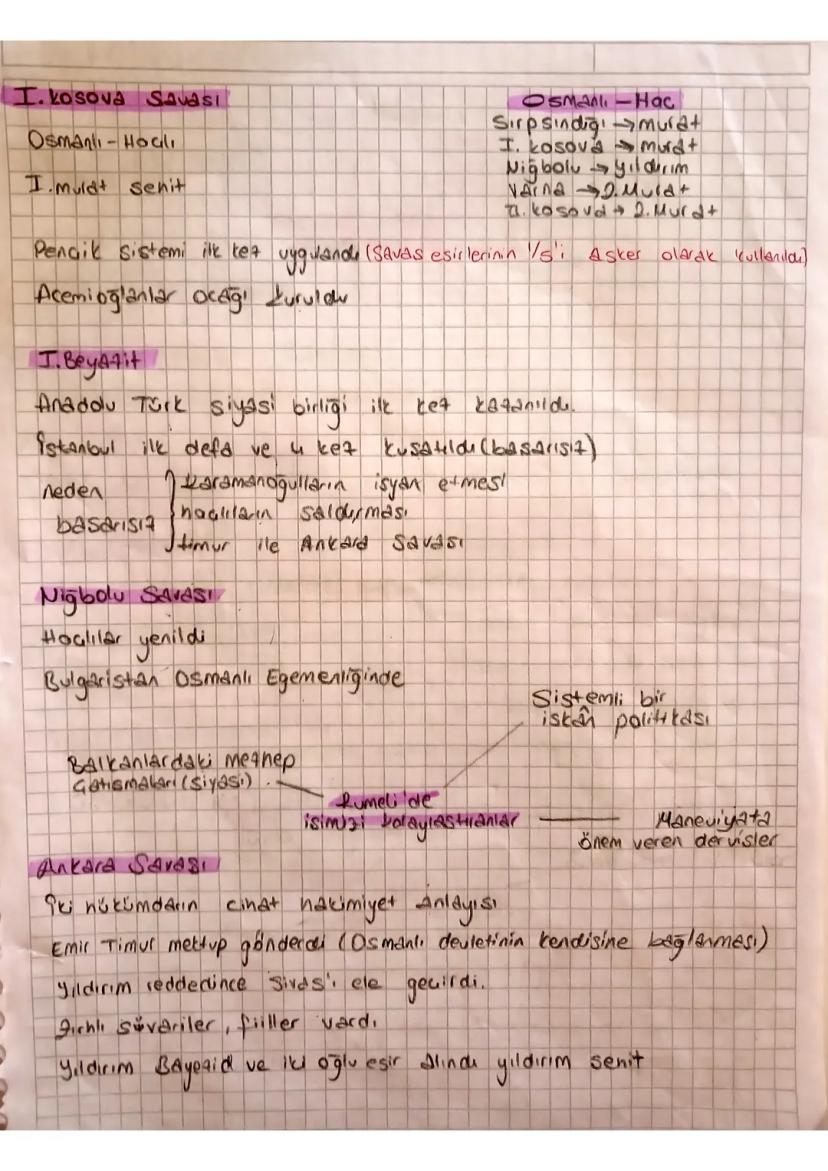 I. Kosova Savası
Osmanlı - Haclı
I. murat sehit
Osmanlı - Hac
Sırpsındığı → murat
I. kosova → murat
Niğbolu → yıldırım
Varna → 2. Murat
II. kosova → 2. Murat
Pencik sistemi ilk kez uygulandı (Savas esirlerinin 1/5'i Asker olarak kullanıldı)
Acemioğlanlar ocağı kuruldu
I. Beyazit
Anadolu Türk siyasi birliği ilk kez kazanıldı.
İstanbul ilk defa ve 4 kez kusatıldı (basarısız)
neden basarısız
karamanoğulların isyan etmesi
haclıların saldırması
timur ile Ankara Savası
Niğbolu Savası
Haclılar yenildi
Bulgaristan Osmanlı Egemenliğinde
Sistemli bir
iskân politikası
Balkanlardaki mezhep
Catısmaları (siyasi)
Rumeli'de
isimizi kolaylastıranlar
Maneviyata
önem veren dervisler
Ankara Savası
İki hükümdarın cihat hakimiyet anlayısı
Emir Timur mektup gönderdi (Osmanlı devletinin kendisine bağlanması)
Yıldırım reddedince Sivas'ı ele gecirdi.
Zırhlı süvariler, fiiller vardı
Yıldırım Bayezid ve iki oğlu esir alındı yıldırım sehit